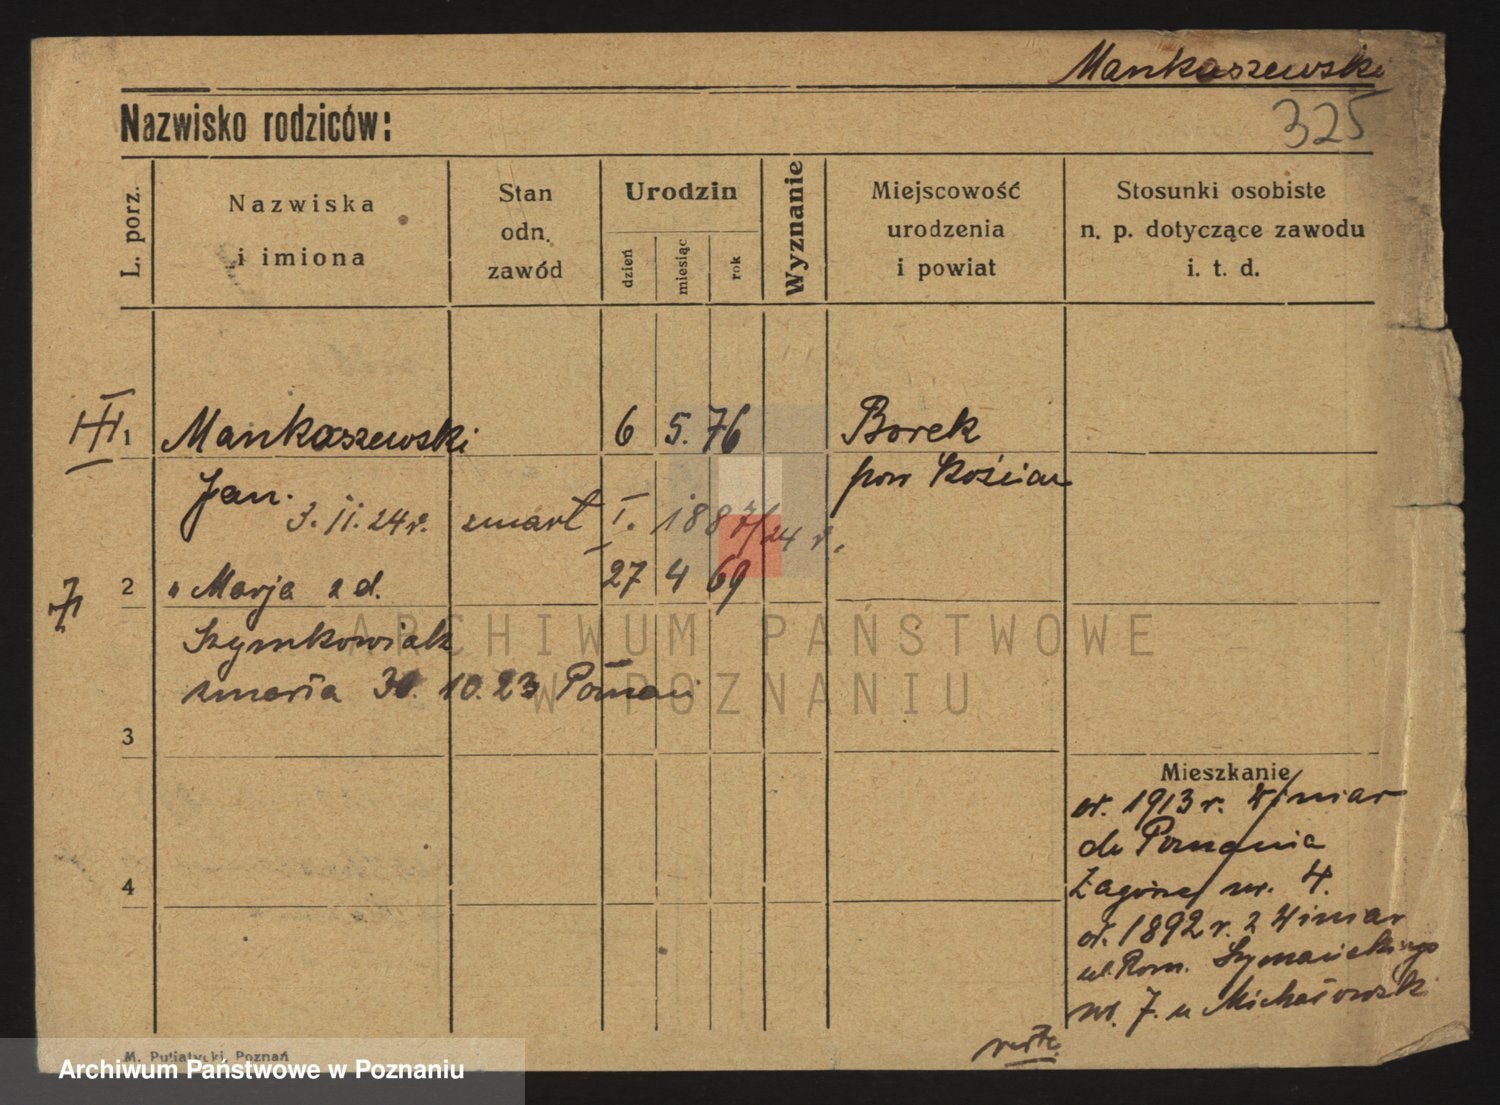 Mankaszewski
325
Nazwisko rodziców:
L. porz.
Nazwiska
i imiona
Stan
odn.
zawód
Urodzin
dzień
miesiąc
rok
Wyznanie
Miejscowość
urodzenia
i powiat
Stosunki osobiste
n. p. dotyczące zawodu
i. t. d.
1 Mankaszewski 6 5. 76 Borek
pow Kościan
Jan.
3. II. 24 r. zmarł I. 1887/24 r.
2 " Marja z d. 27 4 69
Szymkowiak
zmarła 30. 10. 23 Poznań
3
4
Mieszkanie
od. 1913 r. Winiar
do Poznania
Zagórze nr. 4.
od. 1892 r. z Winiar
ul. Rom. Szymańskiego
nr. 7. u Michałowski
M. Putiatycki, Poznań
ARCHIWUM PAŃSTWOWE
W POZNANIU
Archiwum Państwowe w Poznaniu